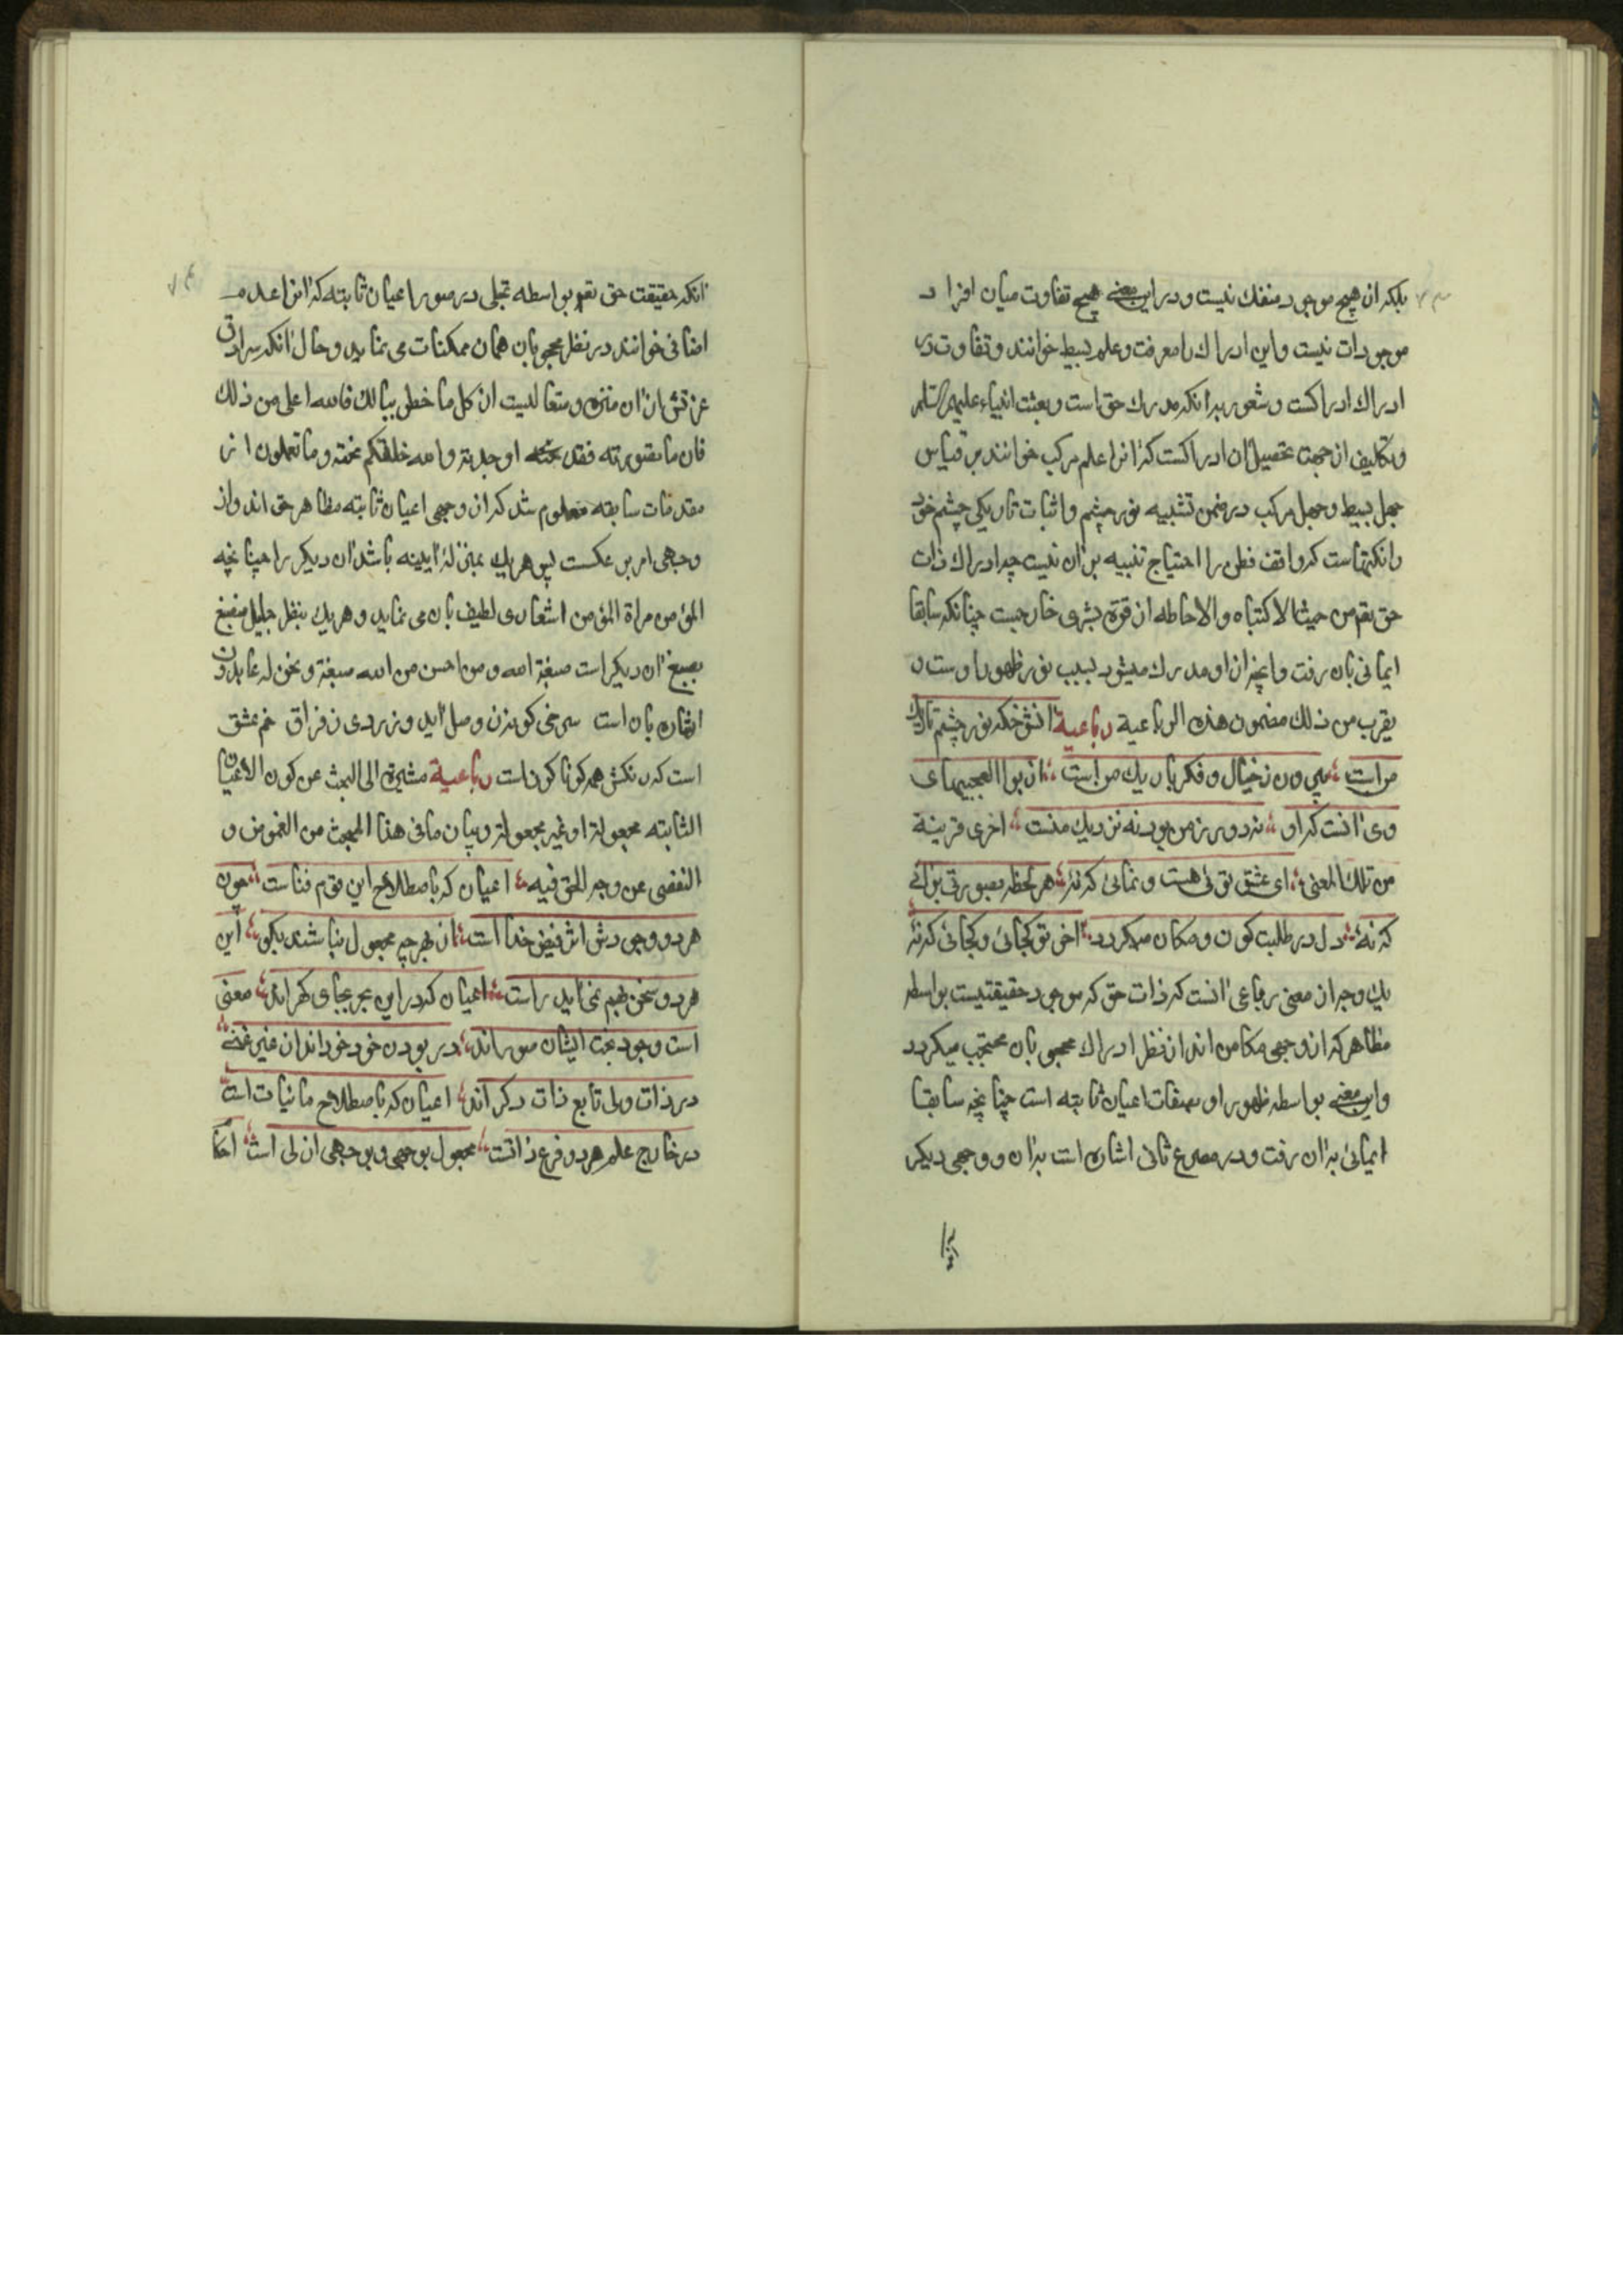 بلکه از هیچ موجود منفك نیست و در این معنی هیچ تفاوت میان افراد
موجودات نیست و این ادراك را معرفت و علم بسیط خوانند و تفاوت در
ادراك ادراکست و شعور بدانکه مدرك حق است و بعثت انبیاء علیهم السلم
و تکالیف از جهت تحصیل ان ادراکست که انرا علم مرکب خوانند بر قیاس
جهل بسیط و جهل مرکب در ضمن تشبیه نور چشم و اثبات تاریکی چشم خود
را نکتهاست که واقف فطن را احتیاج تنبیه بر ان نیست چه ادراك ذات
حق تقم من حیث الاکتناه والاحاطه از قوة بشری خارجست چنانکه سابقا
ایمائی بان رفت وانچه از او مدرك میشود بسبب نور ظهور اوست و
یقرب من ذلك مضمون هذه الرباعیة رباعیة انشوخکه نور چشم تاریك
مراست بیرون ز خیال و فکر باریك مراست از بوالعجبیهای
وی انست که او نه دور ز من بود نه نزدیك منست اخری قرینة
من تلك المعنی ای عشق توئی هست و نمائی که نه هر لحظه بصورتی برائی
که نه دل در طلبت کون و مکان میکردد اخر تو کجائی و کجائی که نه
یك وجه از معنی رباعی انست که ذات حق که موجود حقیقتیست بواسطه
مظاهر که از وجهی مکامن اند از نظر ادراك محجوبان محتجب میکردد
واین معنی بواسطه ظهور او بصفات اعیان ثابته است چنانچه سابقا
ایمائی بدان رفت و در مصرع ثانی اشاره است بدان و وجهی دیکر
انکه حقیقت حق تقم بواسطه تجلی در صور اعیان ثابته که انرا عدم
اضافی خوانند در نظر محجوبان همان ممکنات می نماید و حال انکه سرادق
عزتش از ان منزه و متعالیست ان کل ما خطر ببالك فالله اعلی من ذلك
فان ما تصورته فقد نحته او جدته والله خلقکم نحته وما تعملون از
مقدمات سابقه معلوم شد که از وجهی اعیان ثابته مظاهر حق اند و از
وجهی امر بر عکست پس هر یك بمنزلۀ ایینه باشد ان دیکر را چنانچه
المؤمن مراة المؤمن اشعاری لطیف بان می نماید و هر یك بنظر جلیل منصبغ
بصبغ ان دیکر است صبغة الله ومن احسن من الله صبغة ونحن له عابدون
اشاره بان است سرخی کونه زن وصل اید و زردی ز فراق خم عشق
است که رنکش همه کوناکون است رباعیة مشیرة الی البحث عن کون الاعیان
الثابته مجعولة او غیر مجعولة وبیان ما فی هذا المبحث من الغموض و
التفصی عن وجه الحق فیه اعیان که باصطلاح این قوم فناست چون
هر دو وجودش اثر فیض خداست از بهر چه مجعول نباشند بکو این
هر دو سخن بفهم نماید راست اعیان که در این بحر بجای کهراند معنی
است وجود بحت ایشان صور اند در بودن خود خود اند ان غیر غنی
در ذات ولی تابع ذات دکر اند اعیان که باصطلاح مانیات است
در خارج علم هر دو فرع ذاتست مجعول بوجهی و بوجهی ازلی است احکا